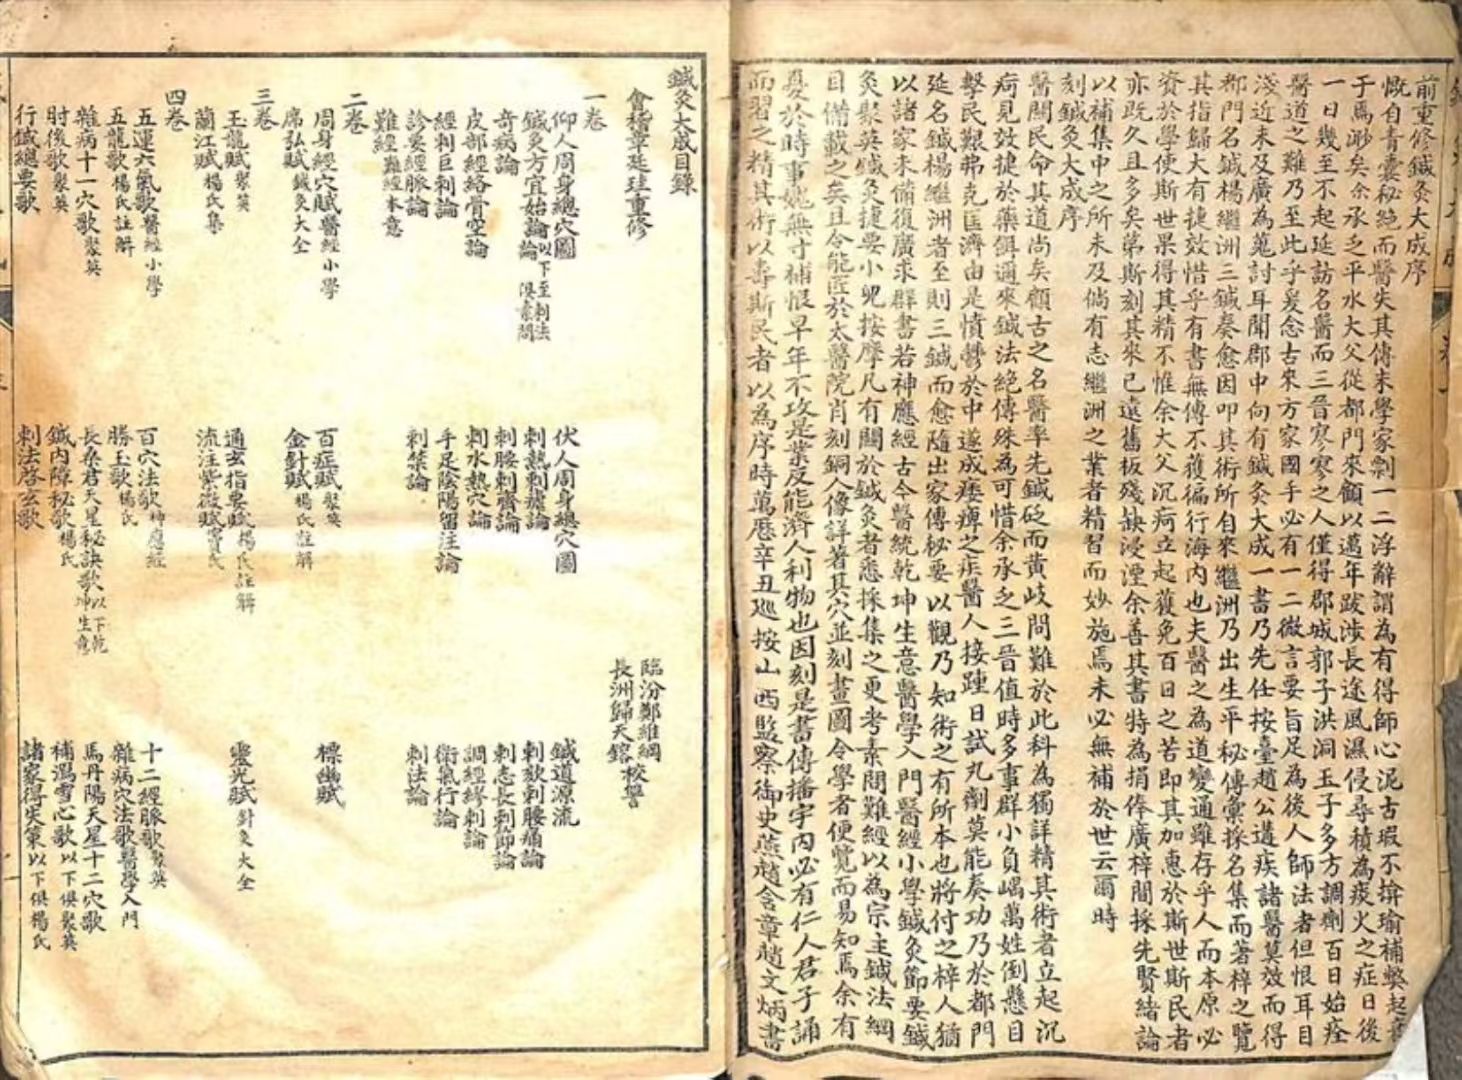 前重修鍼灸大成序
慨自青囊秘絕而醫失其傳末學家剽一二浮辭謂為有得師心泥古瑕不揜瑜補弊起
于焉渺矣余承乏平水大父從都門來顧以邁年跋涉長途風濕侵尋積為痰火之症日後
一日幾至不起延訪名醫而三晉寥寥之人僅得郡城郭子洪洞玉子多方調劑百日始痊
醫道之難乃至此乎爰念古來方家國手必有一二微言要旨足為後人師法者但恨耳目
淺近未及廣為蒐討耳聞郡中向有鍼灸大成一書乃先任按臺趙公遘疾諸醫莫效而得
都門名鍼楊繼洲三鍼奏愈因叩其術所自來繼洲乃出生平秘傳彙採名集而著梓之覽
其指歸大有捷效惜乎有書無傳不獲徧行海內也夫醫之為道變通雖存乎人而本原必
資於學使斯世果得其精不惟余大父沉疴立起獲免百日之苦即其加惠於斯世斯民者
亦既久且多矣第斯刻其來已遠舊板殘缺浸湮余善其書特為捐俸廣梓間採先賢緒論
以補集中之所未及倘有志繼洲之業者精習而妙施焉未必無補於世云爾時
刻鍼灸大成序
醫關民命其道尚矣顧古之名醫率先鍼砭而黃岐問難於此科為獨詳精其術者立起沉
疴見效捷於藥餌邇來鍼法絕傳殊為可惜余承乏三晉值時多事群小負嵎萬姓倒懸目
擊民艱弗克匡濟由是憤鬱於中遂成痿痺之疾醫人接踵日試丸劑莫能奏功乃於都門
延名鍼楊繼洲者至則三鍼而愈隨出家傳秘要以觀乃知術之有所本也將付之梓人猶
以諸家未備復廣求群書若神應經古今醫統乾坤生意醫學入門醫經小學鍼灸節要鍼
灸聚英鍼灸捷要小兒按摩凡有關於鍼灸者悉採集之更考素問難經以為宗主鍼法綱
目備載之矣且令能匠於太醫院肖刻銅人像詳著其穴並刻畫圖令學者便覽而易知焉余有
憂於時事媿無寸補恨早年不攻是業反能濟人利物也因刻是書傳播宇內必有仁人君子誦
而習之精其術以壽斯民者以為序時萬歷辛丑巡按山西監察御史燕趙含章趙文炳書
鍼灸大成目錄
會稽章廷珪重修
臨汾鄭維綱
長洲歸天鎔 校讐
一卷
仰人周身總穴圖 伏人周身總穴圖 鍼道源流
鍼灸方宜始論以下至刺法論俱素問 刺熱刺瘧論 刺欬刺腰痛論
奇病論 刺腰刺齊論 刺志長刺節論
皮部經絡骨空論 刺水熱穴論 調經繆刺論
經刺巨刺論 手足陰陽留注論 衛氣行論
診要經脈論 刺禁論 刺法論
難經難經本意
二卷
周身經穴賦醫經小學 百症賦聚英 標幽賦
席弘賦鍼灸大全 金針賦楊氏註解
三卷
玉龍賦聚英 通玄指要賦楊氏註解 靈光賦針灸大全
蘭江賦楊氏集 流注紫微賦竇氏
四卷
五運六氣歌醫經小學 百穴法歌神應經 十二經脈歌聚英
五龍歌楊氏註解 勝玉歌楊氏 雜病穴法歌醫學入門
雜病十一穴歌聚英 長桑君天星秘訣歌以下乾坤生意 馬丹陽天星十二穴歌
肘後歌聚英 鍼內障秘歌楊氏 補瀉雪心歌以下俱聚英
行鍼總要歌 刺法啓玄歌 諸家得失策以下俱楊氏